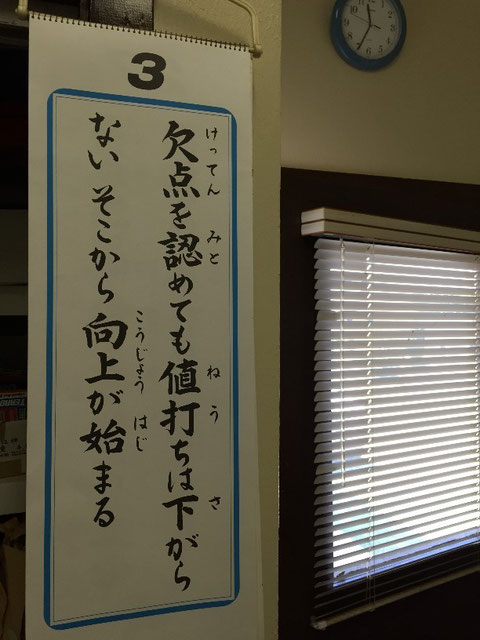 3
欠点を認めても値打ちは下がら
けってん みと ねう さ
ない そこから向上が始まる
こうじょう はじ